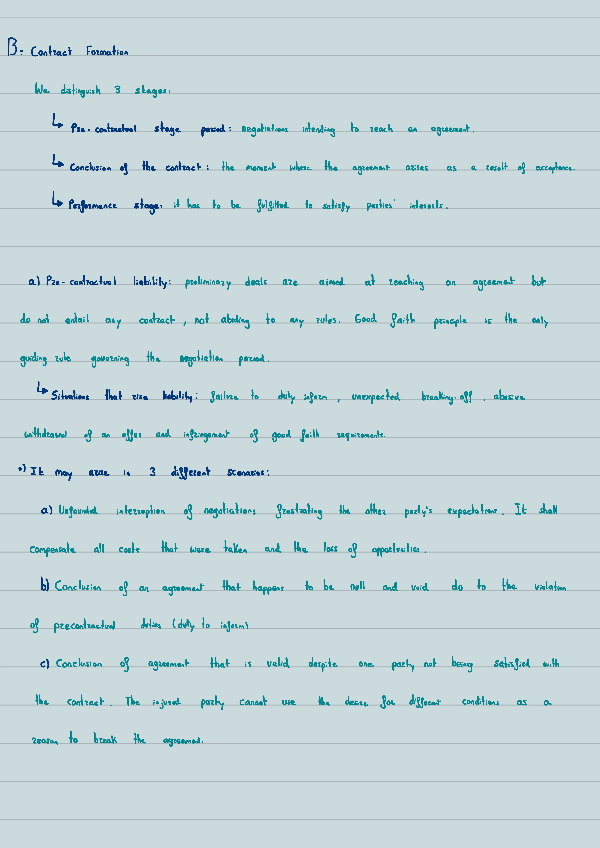 B. Contract Formation
We distinguish 3 stages:
↳ Pre-contractual stage period: negotiations intending to reach an agreement.
↳ Conclusion of the contract: the moment where the agreement arises as a result of acceptance.
↳ Performance stage: it has to be fulfilled to satisfy parties' interests.
a) Pre-contractual liability: preliminary deals are aimed at reaching an agreement but
do not entail any contract, not abiding to any rules. Good faith principle is the only
guiding rule governing the negotiation period.
↳ Situations that rise liability: failure to duty inform, unexpected breaking-off, abusive
withdrawal of an offer and infringement of good faith requirements.
•) It may arise in 3 different scenarios:
a) Unfounded interruption of negotiations frustrating the other party's expectations. It shall
compensate all costs that were taken and the loss of opportunities.
b) Conclusion of an agreement that happens to be null and void do to the violation
of precontractual duties (duty to inform)
c) Conclusion of agreement that is valid despite one party not being satisfied with
the contract. The injured party cannot use the desire for different conditions as a
reason to break the agreement.